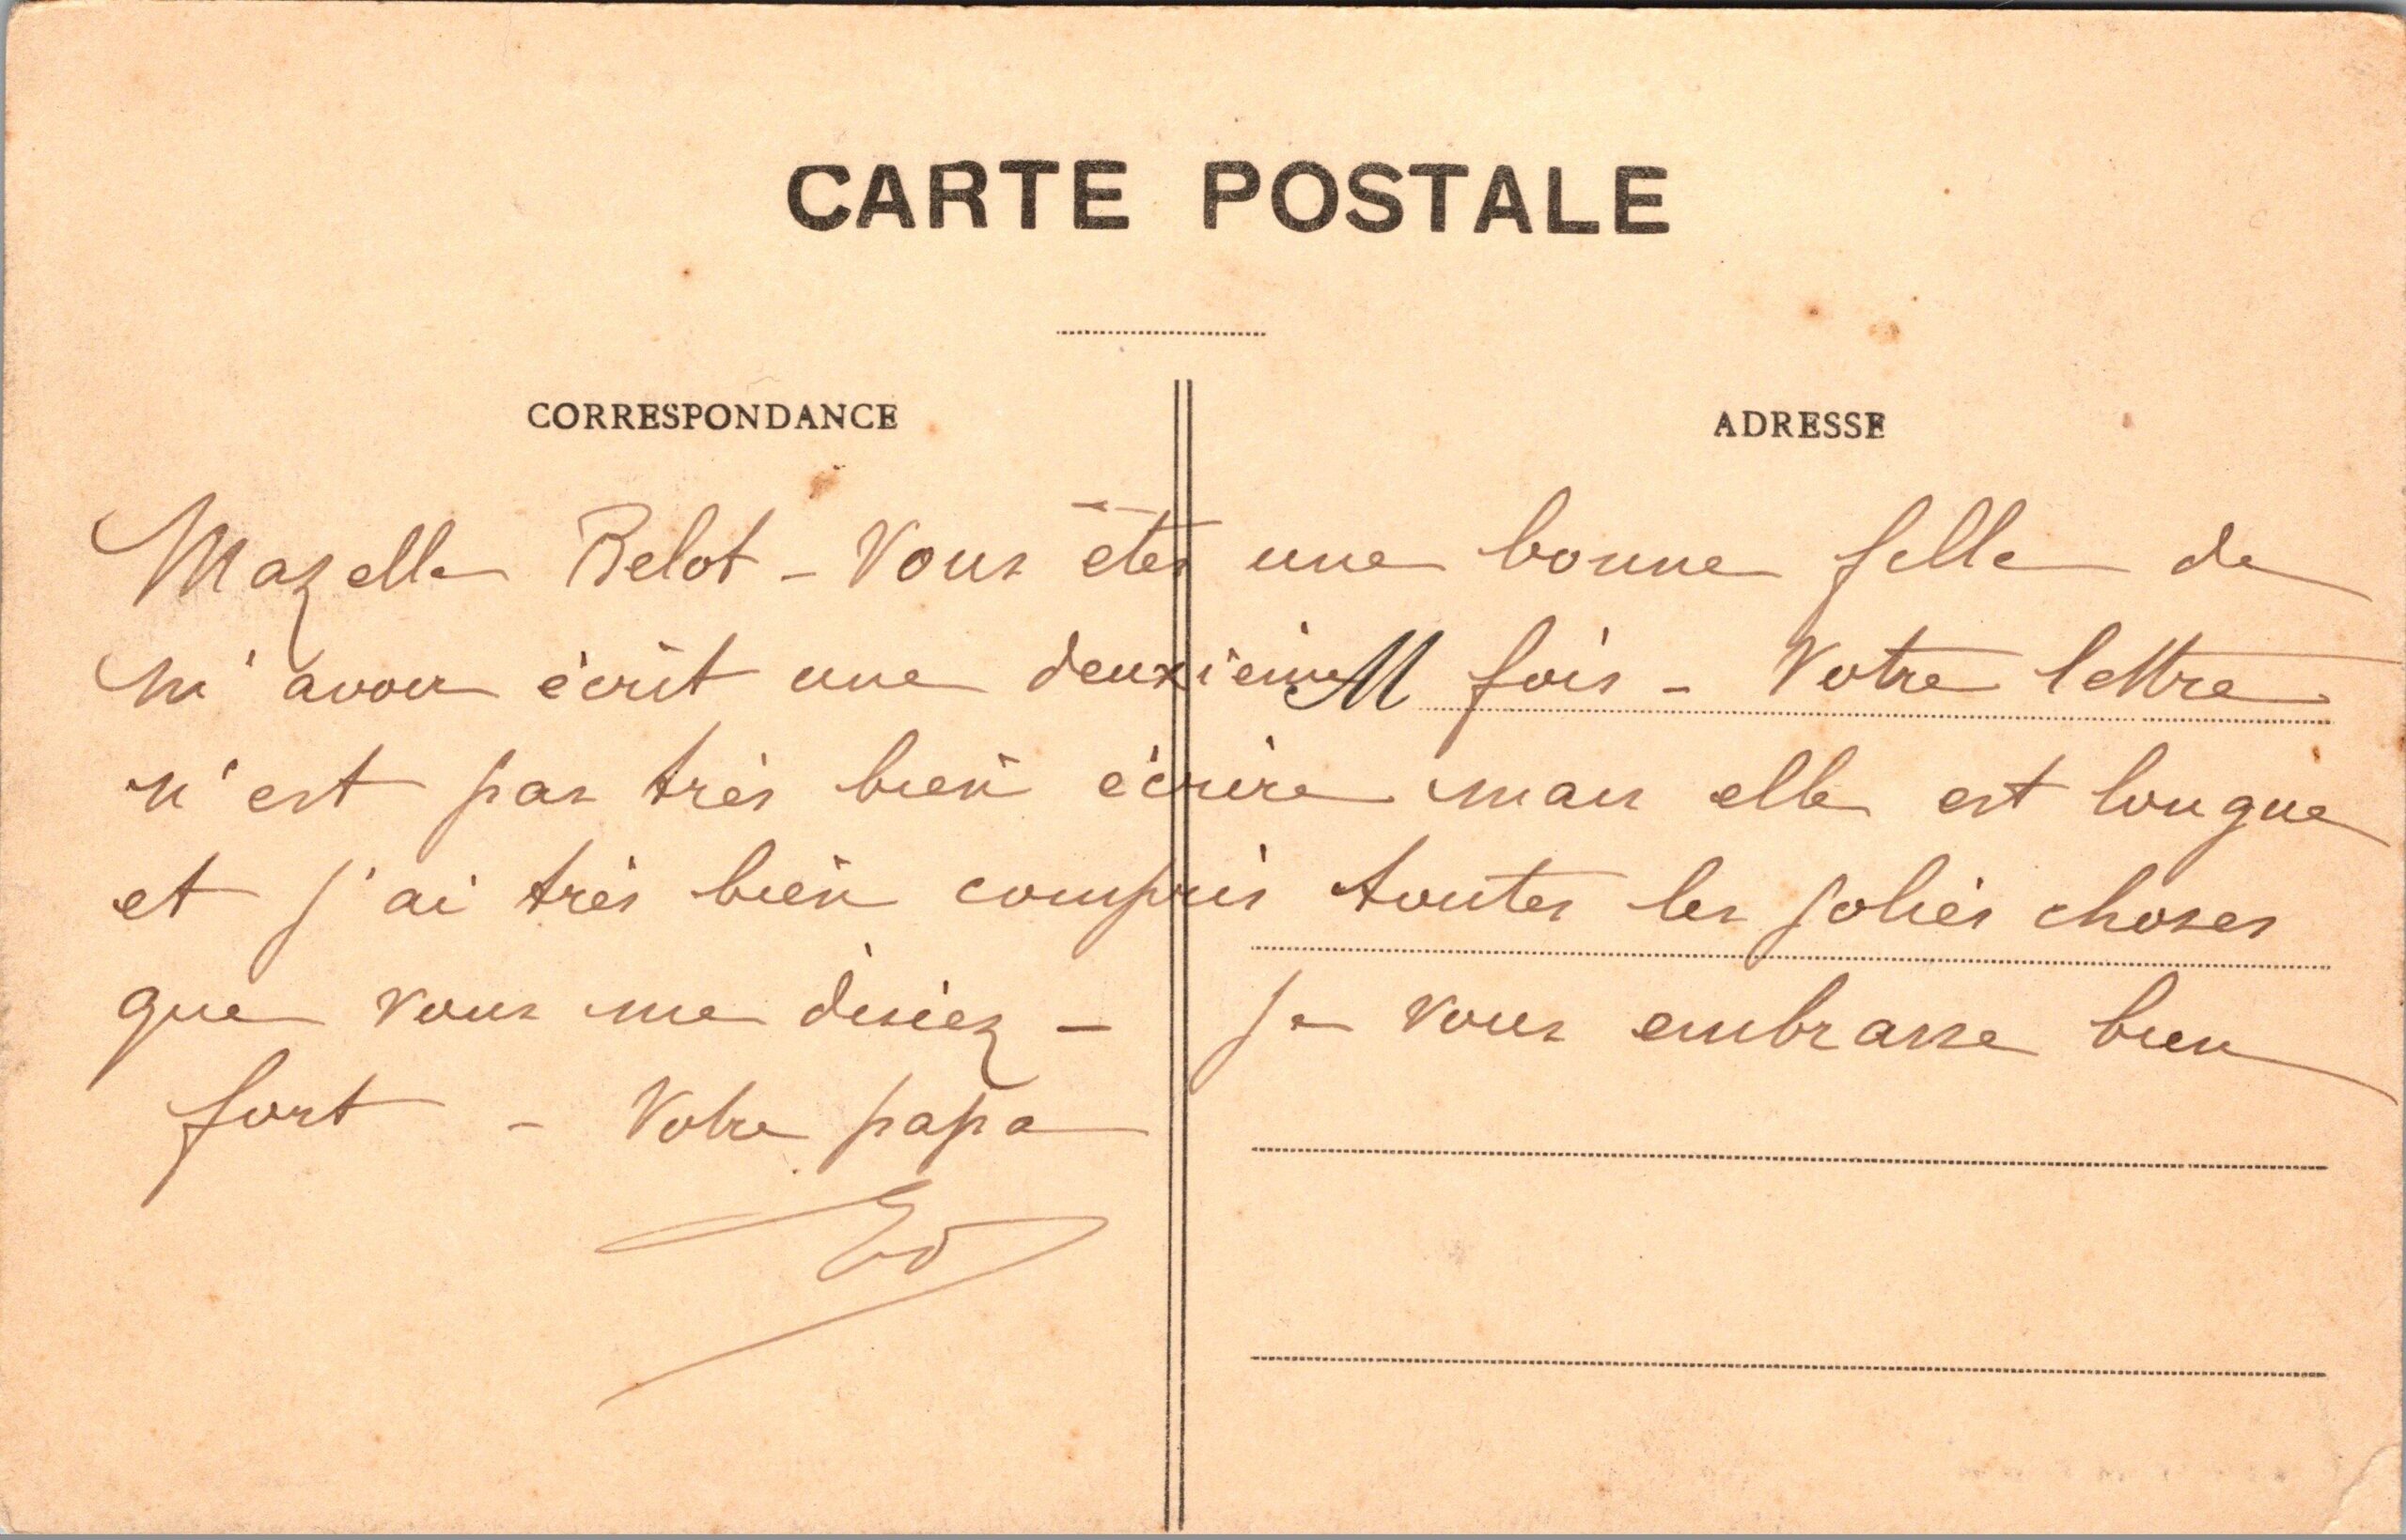 CARTE POSTALE
CORRESPONDANCE
ADRESSE
Mazelle Belot - Vous êtes une bonne fille de
m'avoir écrit une deuxième M fois - Votre lettre
n'est pas très bien écrire mais elle est longue
et j'ai très bien compris toutes les jolies choses
que vous me disiez - Je vous embrasse bien
fort - Votre papa
Ed